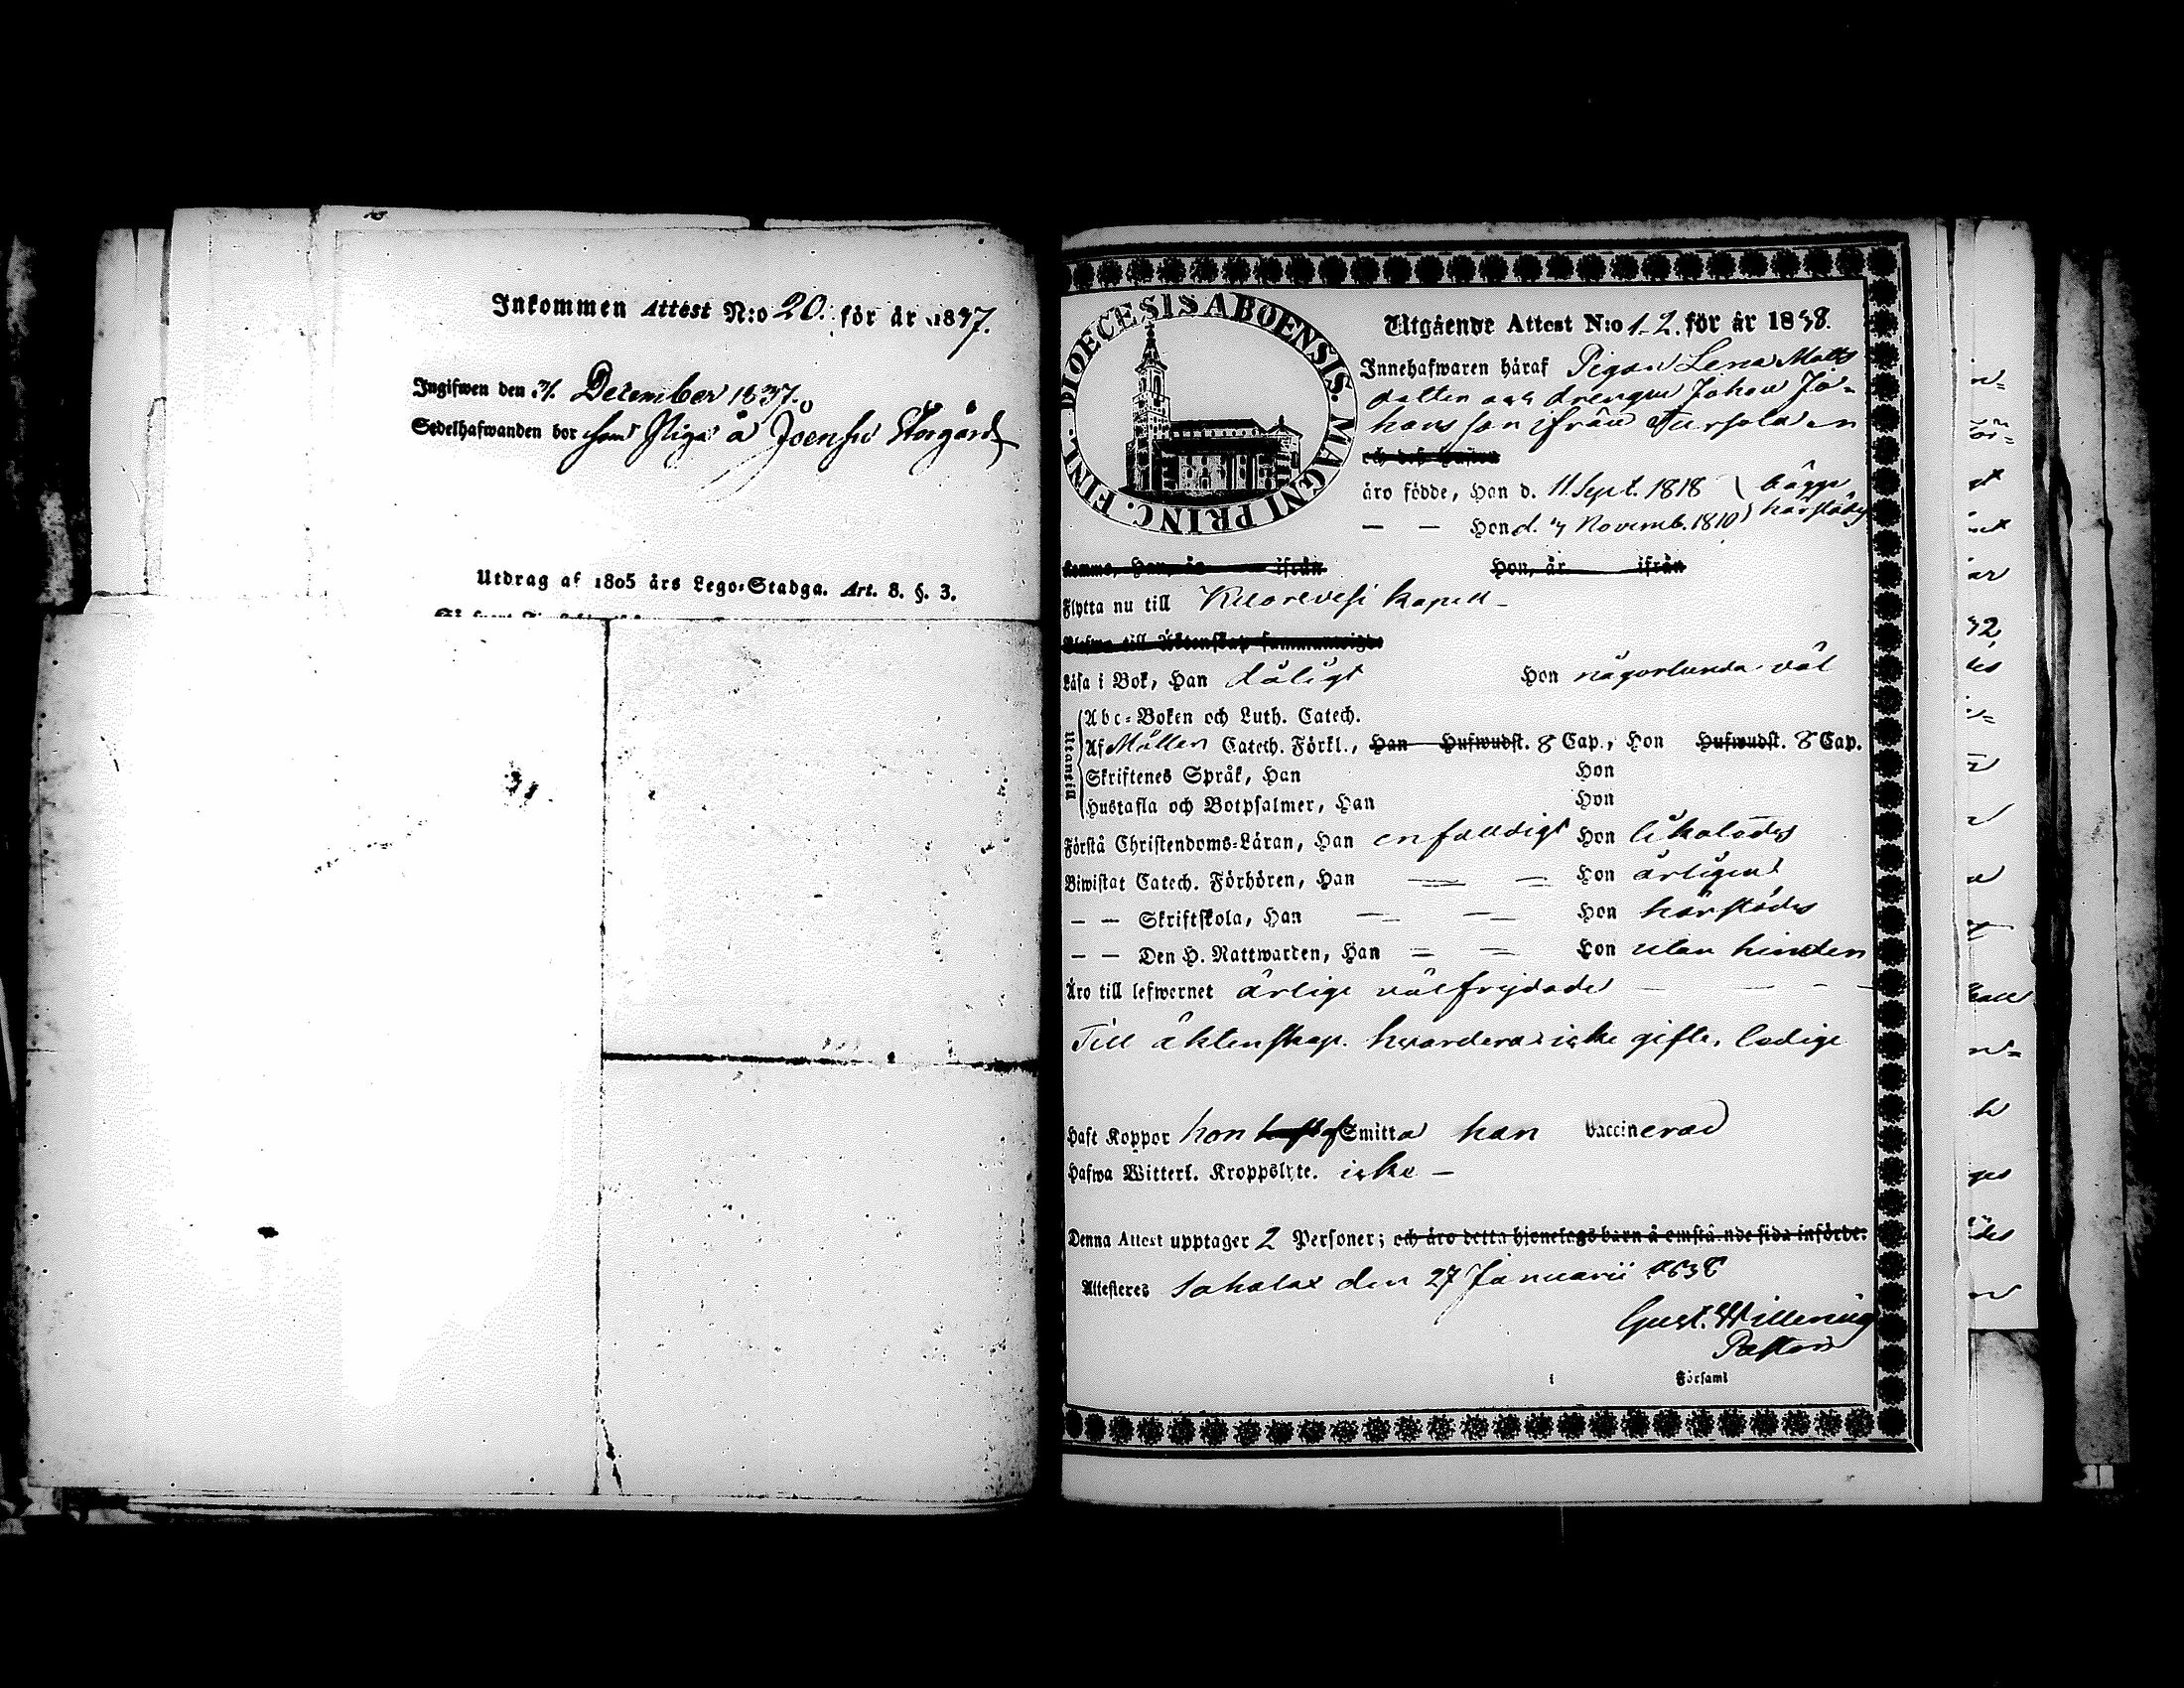 Inkommen Attest N:o 20. för år 1837.
Ingifwen den 31. December 1837.
Sedelhafwanden bor som Piga å Joensu Storgård
Utdrag af 1805 års Lego-Stadga. Art. 8. §. 3.
DIOECESIS ABOENSIS. MAGNI PRINC. FINL.
Utgående Attest N:o 1-2. för år 1838.
Innehafwaren häraf Pigan Lena Matts
dotter och drengen Johan Jo-
hans son ifrån
och dess Hustru
äro födde, Han d. 11. Sept. 1818 bägge
— — Hon d. Novemb. 1810 härstädes
komne, Han, år ifrån Hon, år ifrån
Flytta nu till Kuorevesi kapell -
Blefwo till Äktenskap sammanwigde
Läsa i Bok, Han dåligt Hon någorlunda väl
Utantill
Abc-Boken och Luth. Catech.
Af Möllers Catech. Förkl., Han Hufwudst. 8 Cap., Hon Hufwudst. 8 Cap.
Skriftenes Språk, Han Hon
Hustafla och Botpsalmer, Han Hon
Förstå Christendoms-Läran, Han enfaldigt Hon likaledes
Biwistat Catech. Förhören, Han — — Hon årligen
— — Skriftskola, Han — — Hon härstädes
— — Den H. Nattwarden, Han — — Hon utan hinder
Äro till lefwernet ärlige välfrejdade — — —
Till äktenskap. hvardera icke gifte, ledige
Haft Koppor hon Smitta han Vaccinerad
Hafwa Witterl. Kroppslyte. icke —
Denna Attest upptager 2 Personer; och äro detta hjonelags barn å omstående sida införde.
Attesteres Sahalax den 27 Januarii 1838
Gust. Willenius
Pastor
i Församl